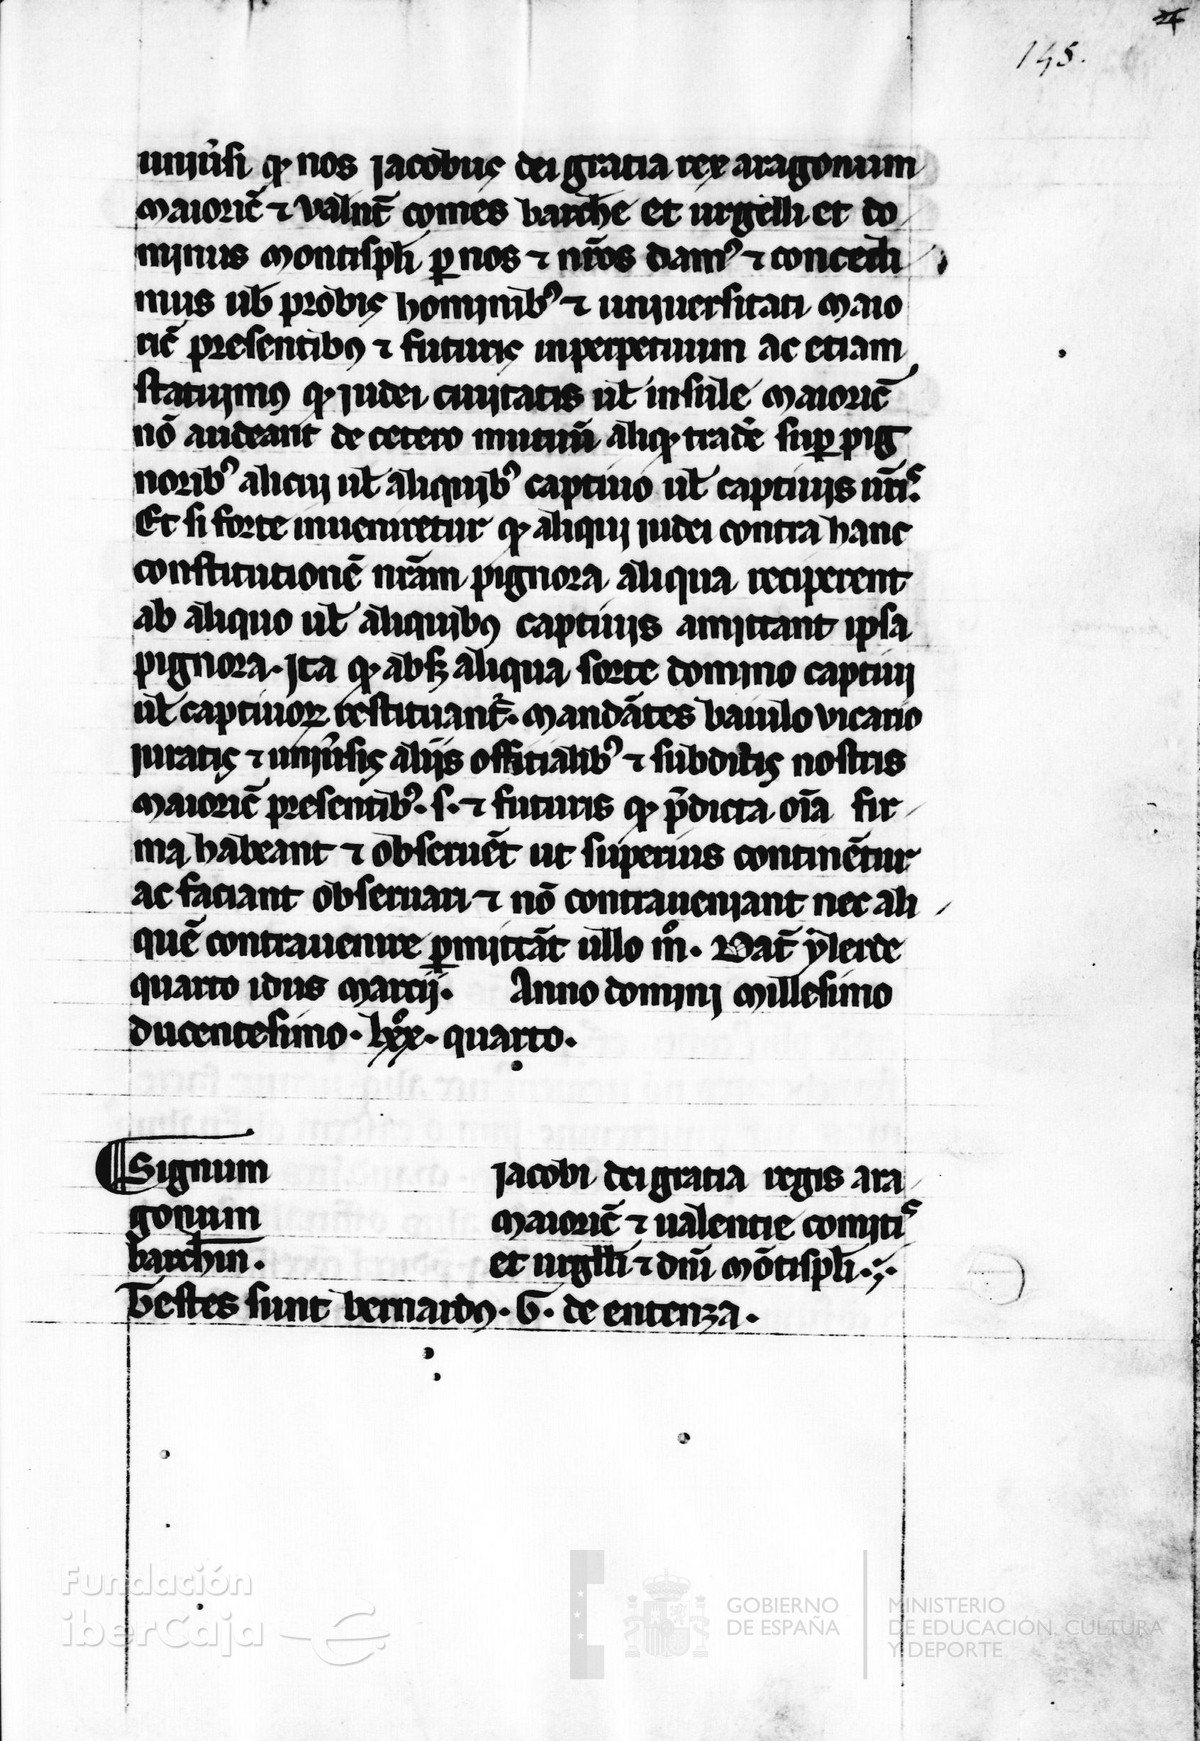 24
145.
uniũsi qᵒ nos jacobus dei gratia rex aragonum
Maioric̃ ⁊ valnt̃ comes barch̄e et urgelli et do
minus Montispłi p̱ nos ⁊ nr̃os damꝰ ⁊ concedi
mus ub̃ probis hominibꝰ ⁊ uniuersitati Maio
ric̃ presentibꝰ ⁊ futuris inperpetuum ac etiam
statuimꝰ qᵒ judei ciuitatis ul̃ insule Maioric̃
nõ audeant de cetero mutuũ aliqᵒ tradẽ sup̱ pig
noribꝰ alicui ul̃ aliquibꝰ captiuo ul̃ captiuis ur̃is.
Et si forte inueniretur qᵒ aliqui judei contra hanc
constitutionẽ nr̃am pignora aliqua reciperent
ab aliquo ul̃ aliquibꝰ captiuis amittant ipsa
pignora. Ita qᵒ absꝫ aliqua sorte domino captiui
ul̃ captiuoꝝ restituant᷑. Mandãtes baiulo vicario
iuratis ⁊ uniũsis alijs officialibꝰ ⁊ subditis nostris
Maioric̃ presentibꝰ. s. ⁊ futuris qᵒ p̃dicta oĩa fir
ma habeant ⁊ obseruẽt ut superius continẽtur
ac faciant obseruari ⁊ nõ contraueniant nec ali
quẽ contrauenire p̱mittãt ullo mº. Dat̃ ylerde
quarto idus Marcij. Anno domini Millesimo
ducentesimo. lxxº. quarto.
Signum jacobi dei gratia regis ara
gonum Maioric̃ ⁊ valentie comitis
barch̄in. et urgl̃li ⁊ dñi Mõtispłi.
Testes sunt bernardꝰ. G. de entenza.
Fundación
iberCaja
GOBIERNO
DE ESPAÑA
MINISTERIO
DE EDUCACIÓN, CULTURA
Y DEPORTE